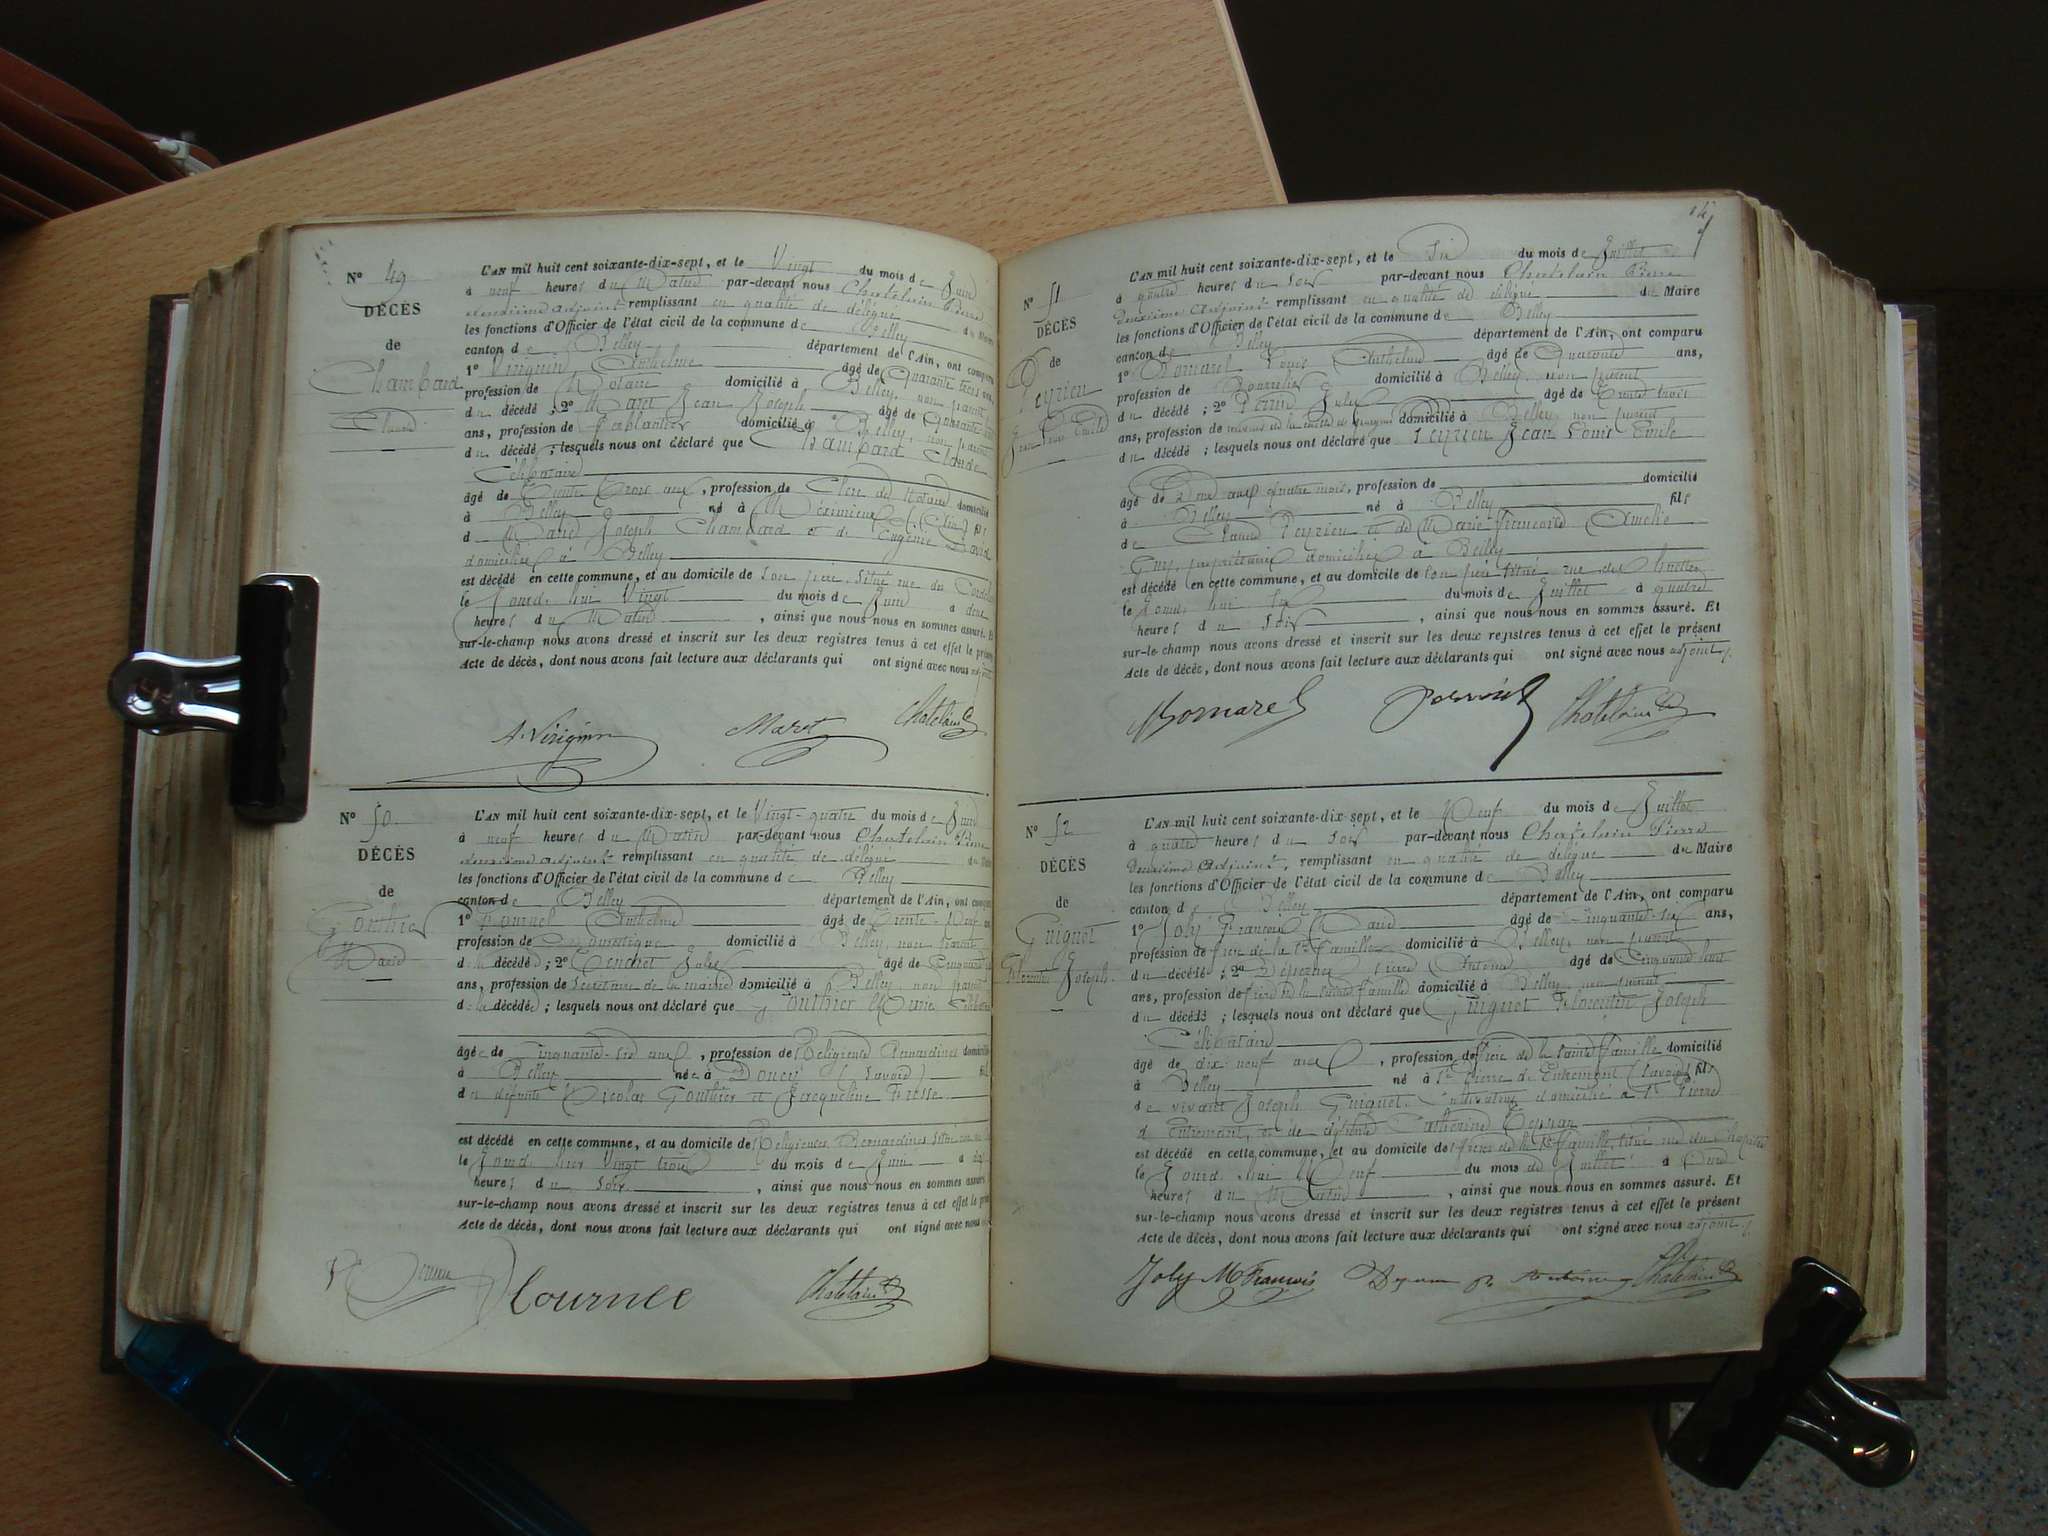 N° 49
DÉCÈS
de
Chambard
Claude
L'AN mil huit cent soixante-dix-sept, et le Vingt du mois de Juin
à neuf heures du Matin par-devant nous Chatelain Pierre
deuxième adjoint remplissant en qualité de délégué du Maire
les fonctions d'Officier de l'état civil de la commune de Belley
canton de Belley département de l'Ain, ont comparu
1° Virignin Anthelme âgé de Quarante trois ans,
profession de Notaire domicilié à Belley, non parent
du décédé ; 2° Maret Jean Joseph âgé de Quarante
ans, profession de Ferblantier domicilié à Belley, non parent
du décédé ; lesquels nous ont déclaré que Chambard Claude
Célibataire
âgé de Trente Trois ans, profession de Clerc de Notaire domicilié
à Belley né à Méximieux (Ain) fils
de Marie Joseph Chambard et de Eugénie David
domiciliés à Belley
est décédé en cette commune, et au domicile de son père, situé rue des
le Jourd'hui Vingt du mois de Juin à deux
heures du Matin, ainsi que nous nous en sommes assuré. Et
sur-le-champ nous avons dressé et inscrit sur les deux registres tenus à cet effet le présent
Acte de décès, dont nous avons fait lecture aux déclarants qui ont signé avec nous adjoint
A. Virignin Maret Chatelain
N° 50
DÉCÈS
de
Gouthier
Marie
L'AN mil huit cent soixante-dix-sept, et le Vingt-quatre du mois de Juin
à neuf heures du Matin par-devant nous Chatelain Pierre
deuxième adjoint remplissant en qualité de délégué du Maire
les fonctions d'Officier de l'état civil de la commune de Belley
canton de Belley département de l'Ain, ont comparu
1° Anthelme âgé de Trente-Neuf ans
profession de Domestique domicilié à Belley, non parent
de la décédée ; 2° Jules âgé de Cinquante
ans, profession de Secrétaire de la mairie domicilié à Belley, non parent
de la décédée ; lesquels nous ont déclaré que Gouthier Marie Célibataire
âgée de Cinquante-six ans, profession de Religieuse Bernardines domiciliée
à Belley née à Doucy (Savoie) fille
du défunt Nicolas Gouthier et Jacqueline
est décédé en cette commune, et au domicile de Religieuses Bernardines situé
le Jourd'hier Vingt trois du mois de Juin à dix
heures du soir, ainsi que nous nous en sommes assuré.
sur-le-champ nous avons dressé et inscrit sur les deux registres tenus à cet effet le présent
Acte de décès, dont nous avons fait lecture aux déclarants qui ont signé avec nous
Chatelain
N° 51
DÉCÈS
de
Peyrieu
Jean Louis Emile
L'AN mil huit cent soixante-dix-sept, et le Six du mois de Juillet
à quatre heures du soir par-devant nous Chatelain Pierre
deuxième Adjoint remplissant en qualité de délégué du Maire
les fonctions d'Officier de l'état civil de la commune de Belley
canton de Belley département de l'Ain, ont comparu
1° Bomarel Louis Anthelme âgé de Quarante ans,
profession de Bourrelier domicilié à Belley, non parent
du décédé ; 2° Jules âgé de Trente trois
ans, profession de domicilié à Belley non parent
du décédé ; lesquels nous ont déclaré que Peyrieu Jean Louis Emile
âgé de Deux ans quatre mois, profession de domicilié
à Belley né à Belley fils
de Claude Peyrieu et de Marie-Françoise Amélie
Guy, propriétaires domiciliés à Belley
est décédé en cette commune, et au domicile de son père situé rue des
le Jourd'hui Six du mois de Juillet à quatre
heures du soir, ainsi que nous nous en sommes assuré. Et
sur-le-champ nous avons dressé et inscrit sur les deux registres tenus à cet effet le présent
Acte de décès, dont nous avons fait lecture aux déclarants qui ont signé avec nous adjoint
Bomarel Chatelain
N° 52
DÉCÈS
de
Guiguet
Florentin Joseph
L'AN mil huit cent soixante-dix-sept, et le Neuf du mois de Juillet
à quatre heures du soir par-devant nous Chatelain Pierre
deuxième Adjoint, remplissant en qualité de délégué du Maire
les fonctions d'Officier de l'état civil de la commune de Belley
canton de Belley département de l'Ain, ont comparu
1° Joly François Marie âgé de Cinquante-six ans,
profession de frère de la Ste famille domicilié à Belley, non parent
du décédé ; 2° Pierre Antoine âgé de Cinquante huit
ans, profession de frère de la sainte famille domicilié à Belley, non parent
du décédé ; lesquels nous ont déclaré que Guiguet Florentin Joseph
Célibataire
âgé de dix neuf ans, profession de frère de la sainte famille domicilié
à Belley né à St Pierre de Entremont (Savoie) fils
de vivant Joseph Guiguet, Cultivateur domicilié à St Pierre
d'Entremont, et de défunte Catherine
est décédé en cette commune, et au domicile de frères de la Ste famille, situé rue du Chapitre
le Jourd'hui Neuf du mois de Juillet à Onze
heures du Matin, ainsi que nous nous en sommes assuré. Et
sur-le-champ nous avons dressé et inscrit sur les deux registres tenus à cet effet le présent
Acte de décès, dont nous avons fait lecture aux déclarants qui ont signé avec nous adjoint
Joly M François Antoine Chatelain